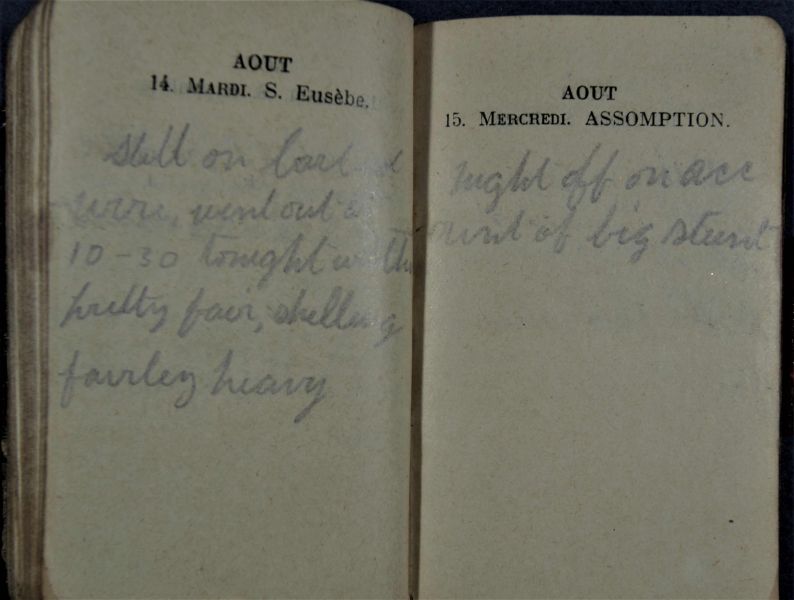 AOUT
14. MARDI. S. Eusèbe.
Still on barbed
wire, went out at
10-30 tonight weth
pretty fair, shelling
fairley heavy
AOUT
15. MERCREDI. ASSOMPTION.
Night off on acc
ount of big stunt